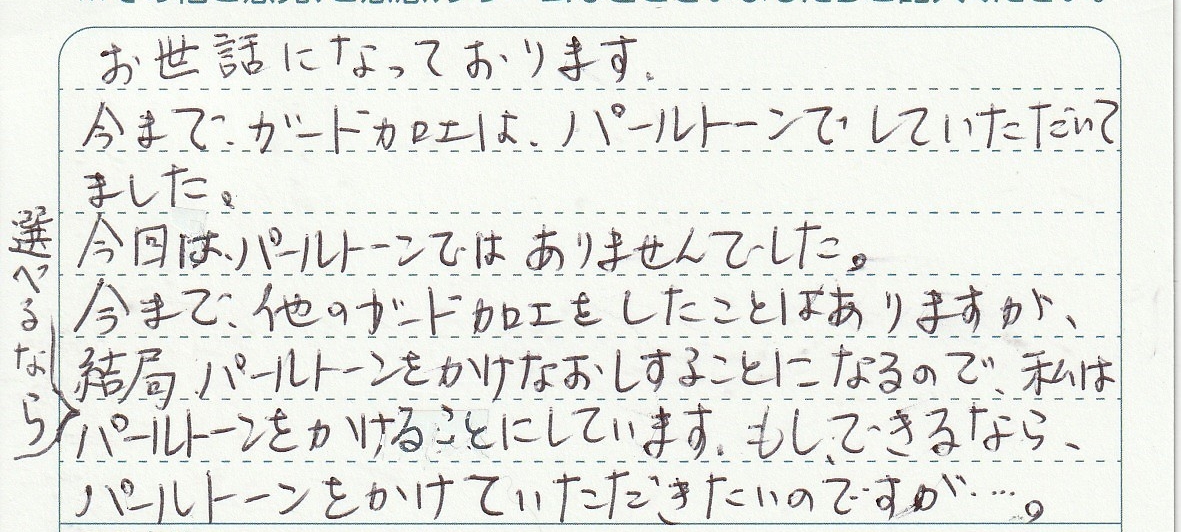 お世話になっております.
今まで、ガード加工は、パールトーンでしていただいて
ました。
今回は、パールトーンではありませんでした。
今まで、他のガード加工をしたことはありますが、
結局パールトーンをかけなおしすることになるので、私は
選べるなら
パールトーンをかけることにしています. もし、できるなら、
パールトーンをかけていただきたいのですが…。